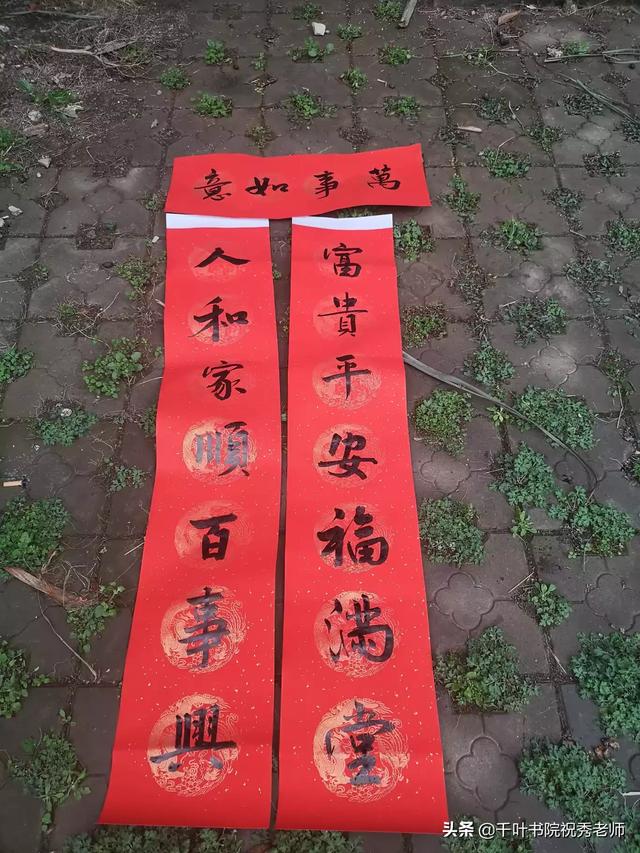 萬事如意
富貴平安福滿堂
人和家順百事興
头条 @千叶书院祝秀老师